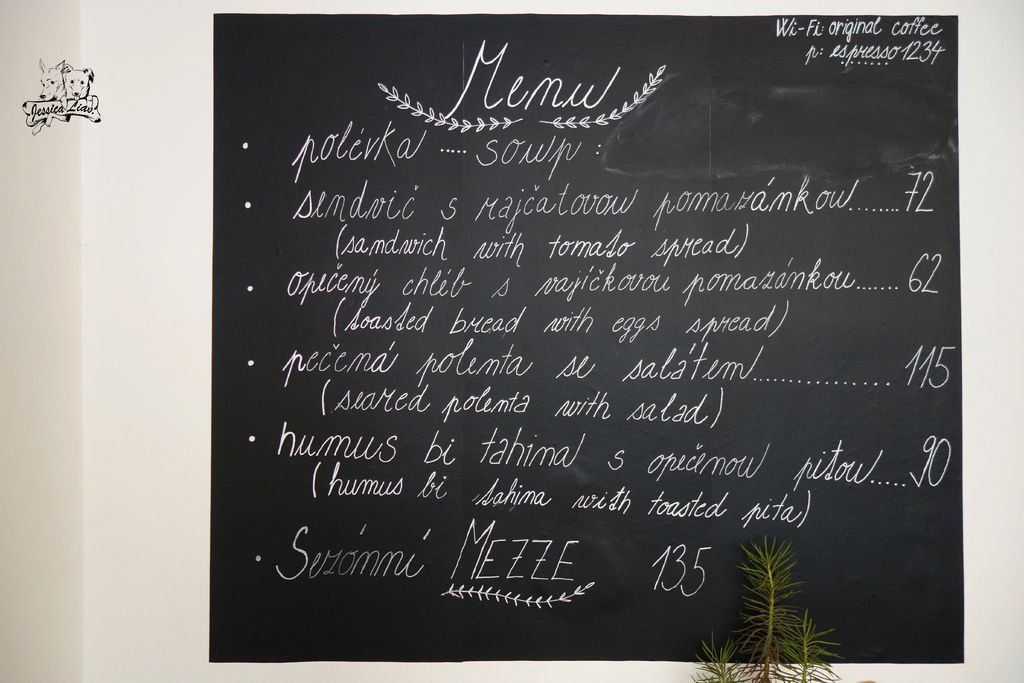 Wi-Fi: original coffee
p: espresso1234
Jessica Liao
Menu
• polévka ..... soup :
• sendvič s rajčatovou pomazánkou........72
(sandwich with tomato spread)
• opičený chléb s vajíčkovou pomazánkou.......62
(toasted bread with eggs spread)
• pečená polenta se salátem............... 115
(seared polenta with salad)
• humus bi tahina s opečenou pitou.....90
(humus bi tahina with toasted pita)
• Sezónní MEZZE 135